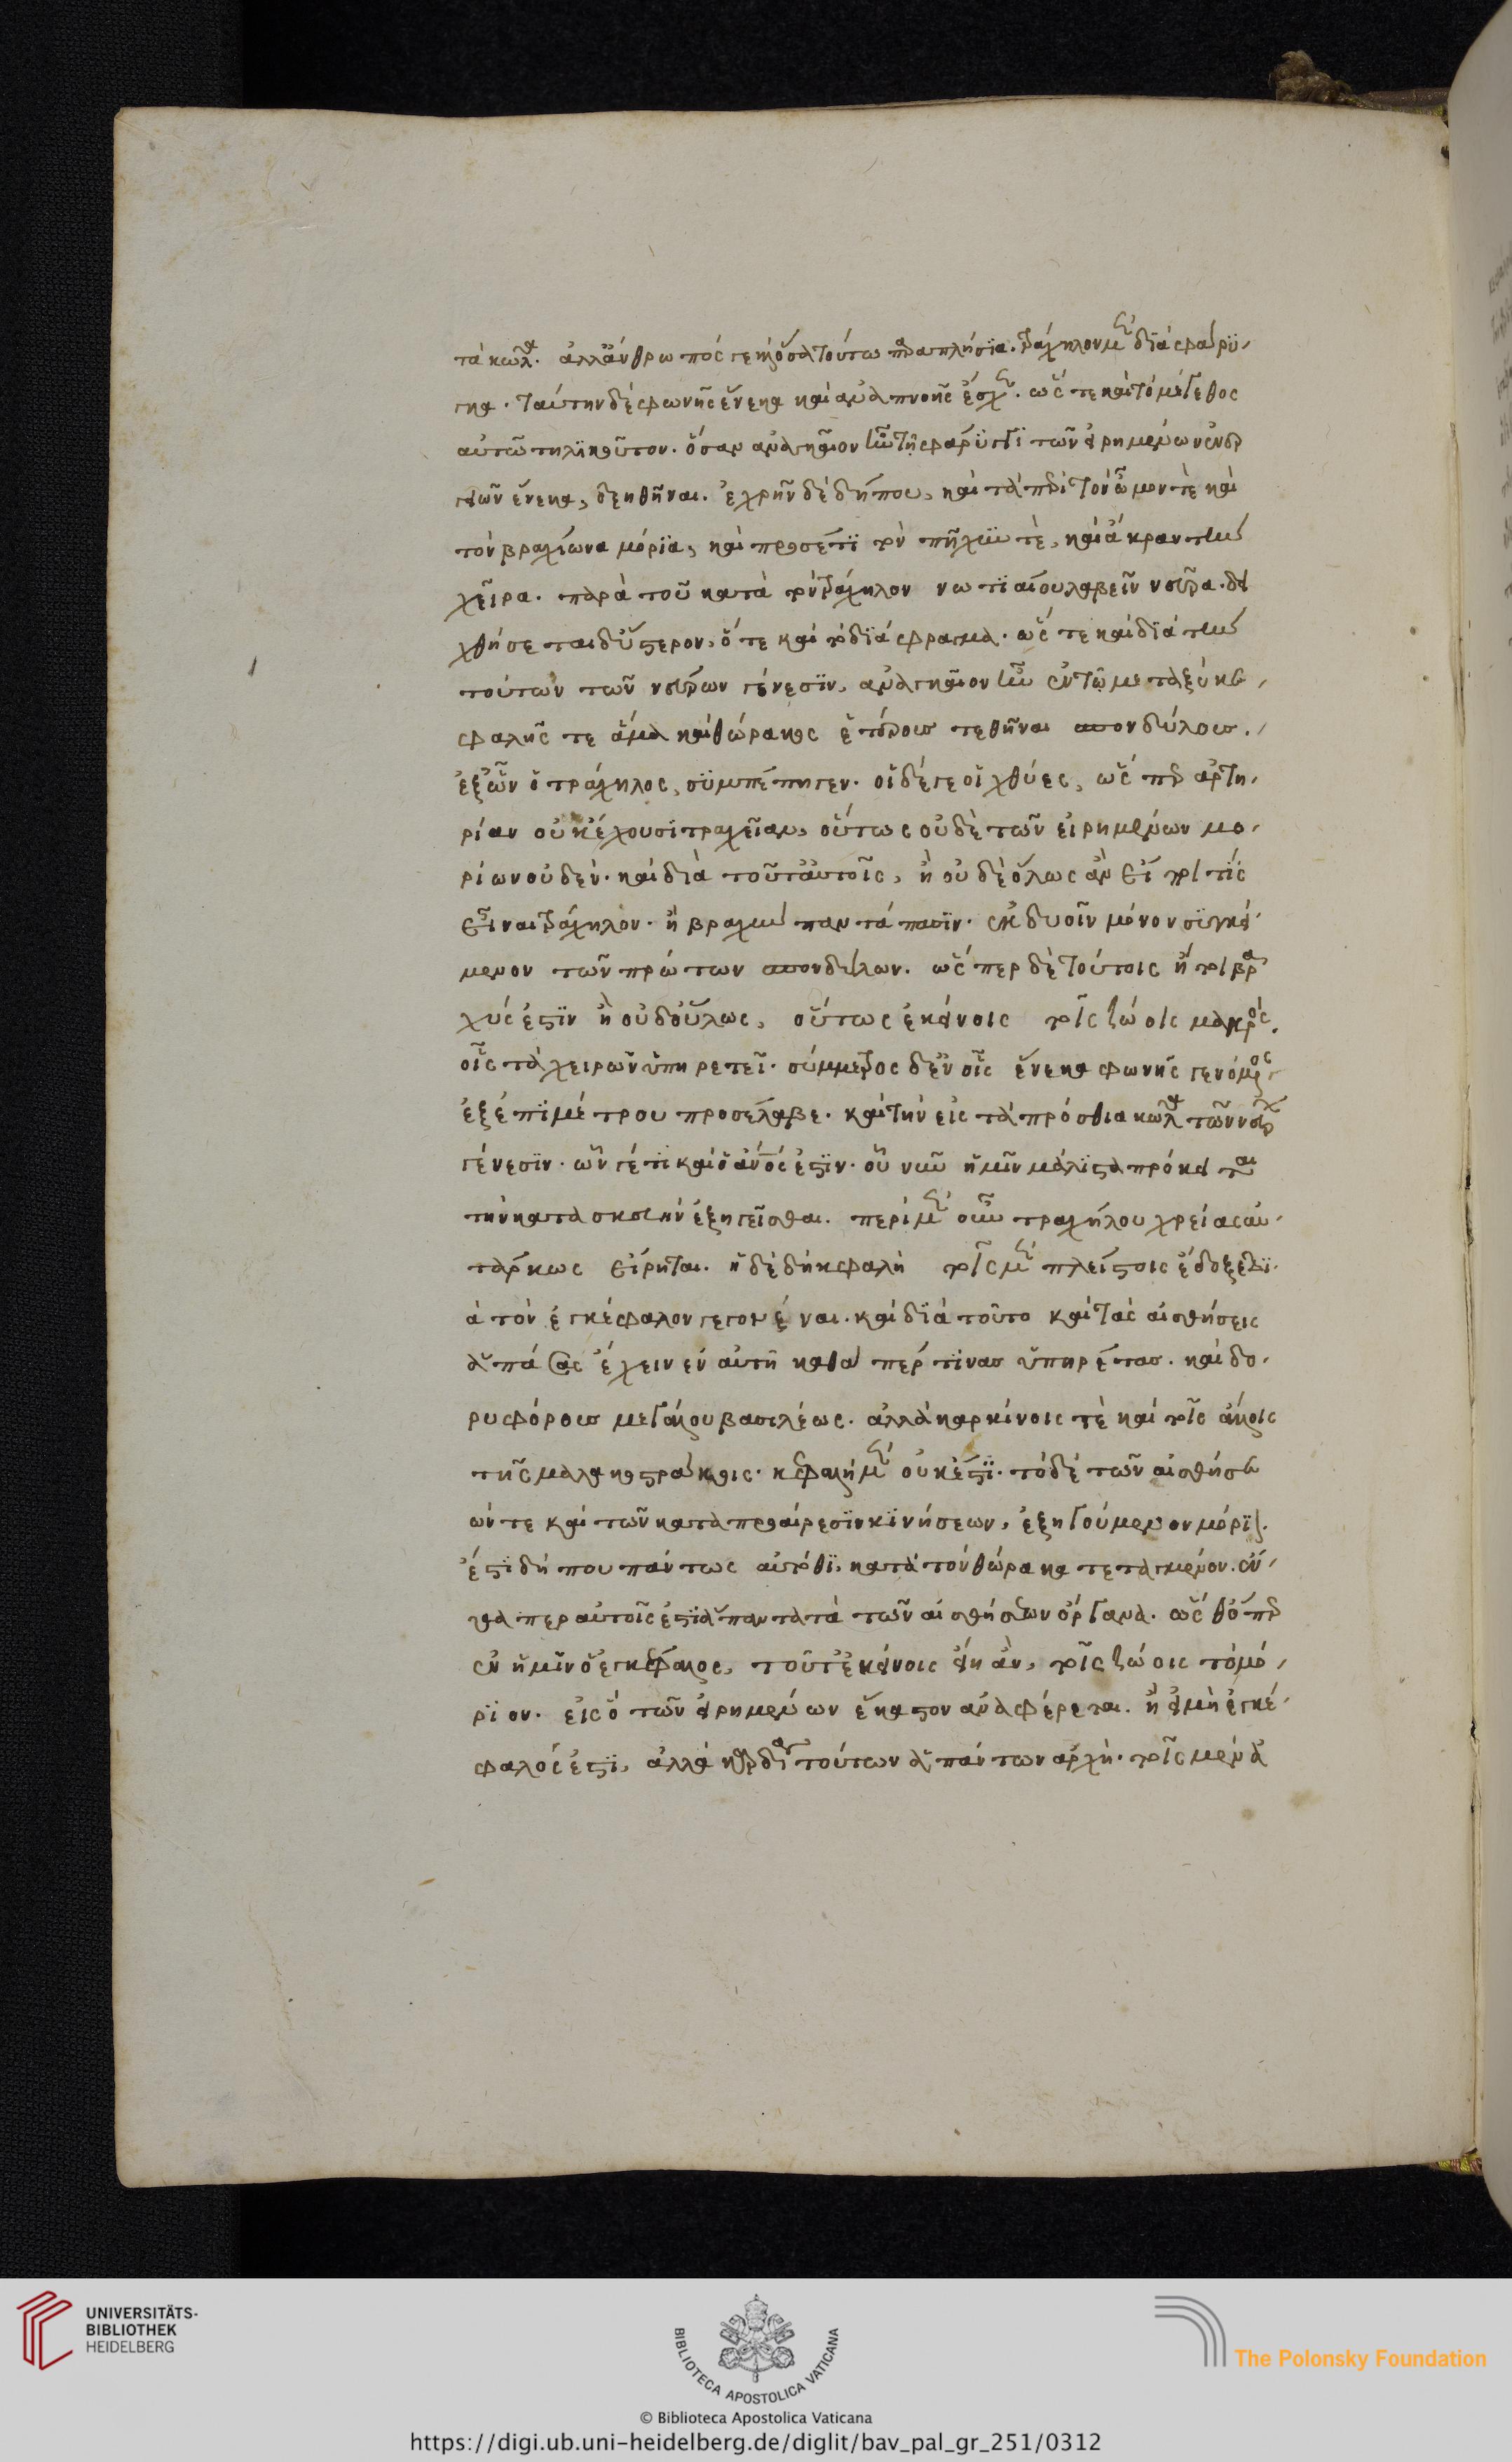 τὰ κῶλα. ἀλλ' ἄνθρωπός γε καὶ ὅσα τούτω παραπλήσϊα. τράχηλον μὲν διὰ φάρυ-
γγα. ταύτην δὲ φωνῆς ἕνεκα καὶ ἀναπνοῆς ἔσχεν. ὥς τε καὶ τὸ μέγεθος
αὐτῶ τηλϊκοῦτον. ὅσον ἀναγκαῖον ἦν τῆ φάρυγγϊ τῶν εἰρημένων ἐνερ
γειῶν ἕνεκα, δεηθῆναι. ἐχρῆν δὲ δήπου, καὶ τὰ περὶ τὸν ὦμον τὲ καὶ
τὸν βραχίονα μόρϊα, καὶ προσέτϊ τὸν πῆχυν τὲ, καὶ ἄκραν τὴν
χεῖρα. παρὰ τοῦ κατὰ τὸν τράχηλον νωτιαίου λαβεῖν νεῦρα. δει
χθήσεται δ' ὕστερον, ὅτε καὶ τὸ δϊάφραγμα. ὥς τε καὶ δϊὰ τὴν
τούτων τῶν νεύρων γένεσϊν, ἀναγκαῖον ἦν ἐν τῶ μεταξὺ κε-
φαλῆς τε ἅμα καὶ θώρακος ἑτέρους τεθῆναι σπονδύλους.
ἐξ ὧν ὁ τράχηλος, συμπέπηγεν. οἱ δέ γε ἰχθύες, ὥς περ ἀρτη-
ρίαν οὐκ ἔχουσι τραχεῖαν, οὕτως οὐδὲ τῶν εἰρημένων μο-
ρίων οὐδέν. καὶ διὰ τοῦτ' αὐτοῖς, ἢ οὐδὲ ὅλως ἂν εἴποι τίς
εἶναι τράχηλον. ἢ βραχὺν παντάπασϊν. ἐκ δυοῖν μόνον συγκεί-
μενον τῶν πρώτων σπονδύλων. ὥς περ δὲ τούτοις ἤτοι βρα
χύς ἐστϊν ἢ οὐδ' ὅλως, οὕτως ἐκείνοις τοῖς ζώοις μακρός.
οἷς τὰ χειρῶν ὑπηρετεῖ. σύμμετρος δ' ἐν οἷς ἕνεκα φωνῆς γενόμενος
ἐξ ἐπϊμέτρου προσέλαβε. καὶ τὴν εἰς τὰ πρόσθια κῶλα τῶν νεύρων
γένεσϊν. ὧν γέ τϊ καὶ ὁ ἄνος ἐστϊν. οὗ νῦν ἡμῖν μάλϊστα πρόκειται
τὴν κατασκευὴν ἐξηγεῖσθαι. περὶ μὲν οὖν τραχήλου χρείας αὐ-
τάρκως εἴρηται. ἡ δὲ δὴ κεφαλὴ τοῖς μὲν πλείστοις ἔδοξε δϊ-
ὰ τὸν ἐγκέφαλον γεγονέναι. καὶ δϊὰ τοῦτο καὶ τὰς αἰσθήσεις
ἁπάσας ἔχειν ἐν αὐτῆ καθάπερ τϊνας ὑπηρέτας. καὶ δο-
ρυφόρους μεγάλου βασιλέως. ἀλλὰ καρκίνοις τὲ καὶ τοῖς ἄλλοις
τῆς μαλακοστράκοις. κεφαλὴ μὲν οὐκ ἔστϊ. τὸ δὲ τῶν αἰσθήσε
ών τε καὶ τῶν κατὰ προαίρεσϊν κϊνήσεων, ἐξηγούμενον μόρϊον.
ἔστι δήπου πάντως αὐτόθϊ, κατὰ τὸν θώρακα τεταγμένον. ἔν-
θα περ αὐτοῖς ἐστϊ ἅπαντα τὰ τῶν αἰσθήσεων ὄργανα. ὥς θ' ὅπερ
ἐν ἡμῖν ὁ ἐγκέφαλος, τοῦτ' ἐκείνοις εἴη ἂν, τοῖς ζώοις τὸ μό-
ρϊον. εἰς ὃ τῶν εἰρημένων ἕκαστον ἀναφέρεται. ἢ εἰ μὴ ἐγκέ-
φαλός ἐστϊ, ἀλλὰ καρδία τούτων ἁπάντων ἀρχή. τοῖς μὲν ἀ
UNIVERSITÄTS-
BIBLIOTHEK
HEIDELBERG
BIBLIOTECA APOSTOLICA VATICANA
The Polonsky Foundation
© Biblioteca Apostolica Vaticana
https://digi.ub.uni-heidelberg.de/diglit/bav_pal_gr_251/0312